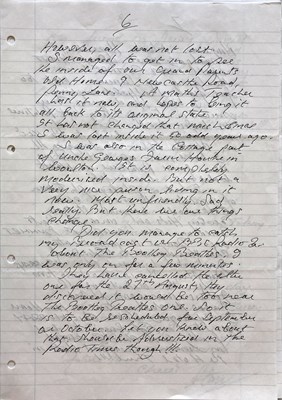 6
However, all was not lost.
I managed to get in to see
the inside of our Grand Parents
old Home. 9 Newcastle Road
Penny Lane. A Maths Teacher
has it now, and hopes to bring it
all back to its original state.
It has not changed that much since
I was last inside it 50 odd years ago.
I was also in the Cottage part
of Uncle Georges Farm House in
Woolton. It is completely
modernized inside. But not a
very nice person living in it
now. Most unfriendly. Sad
really. But here we are things
change.
Did you manage to catch
my broadcast on BBC Radio 2
about The Bootleg Beatles. I
was only on for a few minutes.
They have cancelled the other
one for the 27th August. They
discovered it would be too near
The Bootleg Beatles one. So it
is to be rescheduled for September
or October. Let you know about
that. Should be Advertised in the
Radio Times though!!!